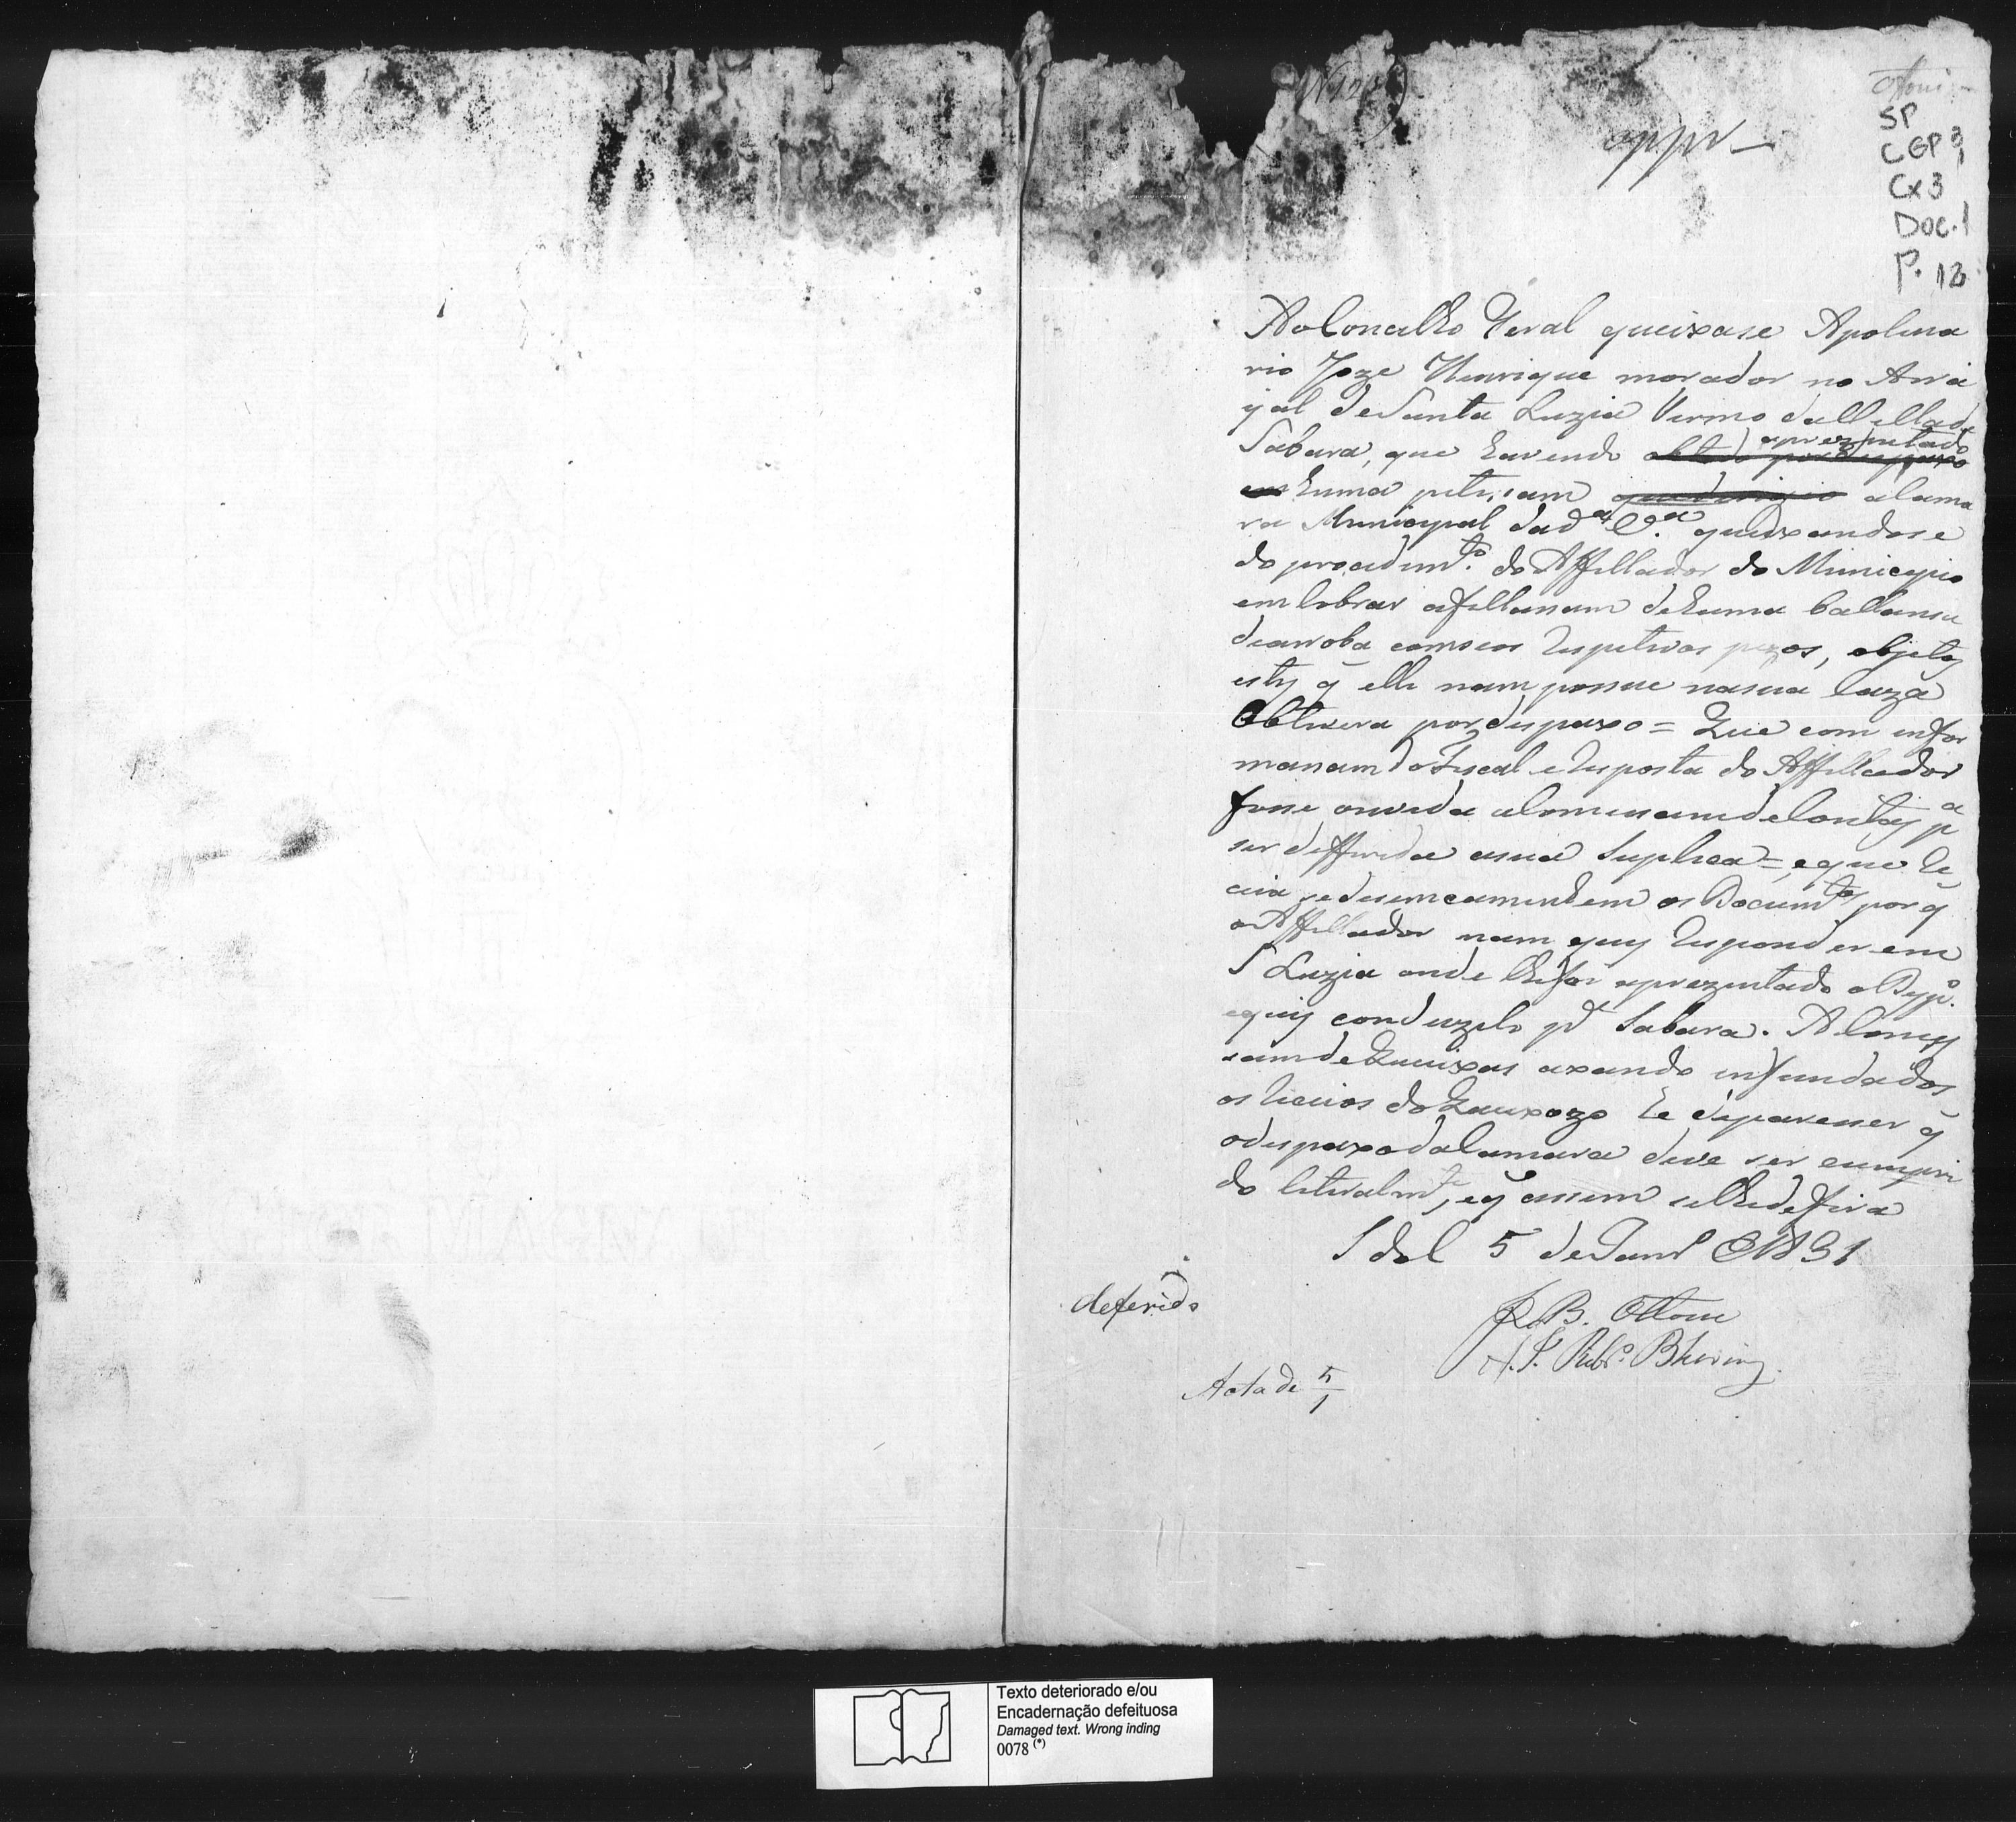 Ottoni
SP
CGP 3
1
Cx 3
Doc. 1
P. 13
appr
Ao Concelho Geral queixase Apolina
rio Joze Henrique morador no Arra
yal de Santa Luzia Termo da Villa de
Sabara, que havendo obtido por despaxo aprezentado
em huma petisam que derigio a Cama
ra Municipal da d.ª V.ª queixandose
do procedim.to do Affillador do Municipio
em Cobrar afillasam de huma ballansa
de arroba com seos respetivos pezos, objetos
estes q̃ elle nam possue na sua Caza
Obtivera por despaxo = Que com infor
masam do Fiscal e resposta do Affillador
fosse ouvida a Comisam de Contas p.ª
ser defferida a sua Suplica =, e que re
ceia se desemcaminhem os Docum.tos por q̃
o Affillador nam quis responder em
S Luzia onde lhe foi aprezentado o Desp.º
e quis conduzilo p.ª Sabara. A Comis
sam de Queixas axando infundados
os receios do Queixozo he de parecer q̃
o despaxo da Camara deve ser cumpri
do literalm.te, e q̃ assim se lhe defira
S do C 5 de Jan.º 1831
deferido
J. B. Ottoni
A. J. Rib.º Bhering
Acta de 5/1
Texto deteriorado e/ou
Encadernação defeituosa
Damaged text. Wrong inding
0078 (*)